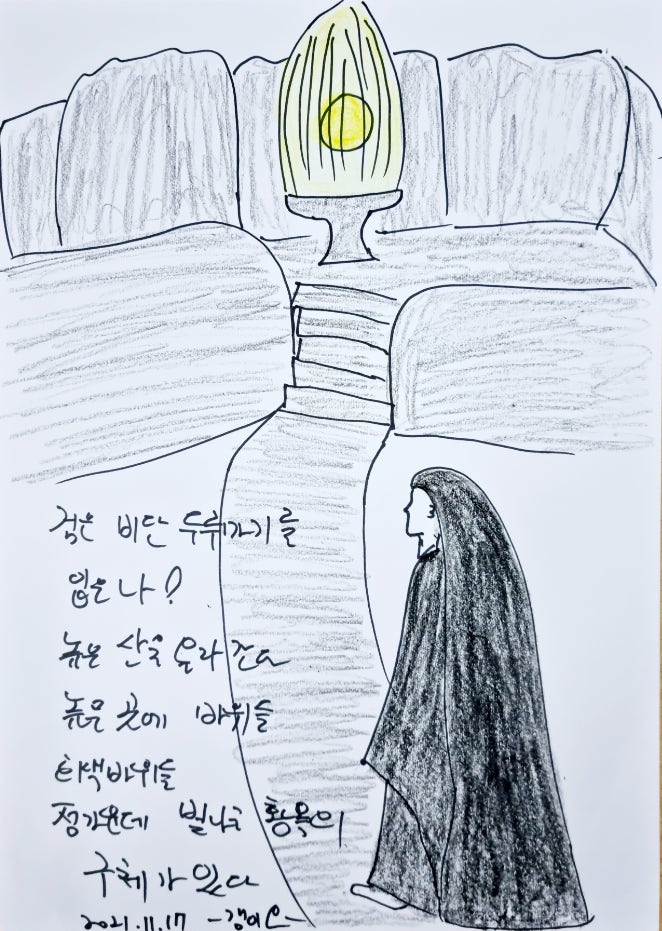 검은 비단 두루가기를
입은 나?
높은 산을 올라 간다
높은 곳에 바위들
회색바위들
정가운데 빛나는 황옥의
구체가 있다
2021.11.17